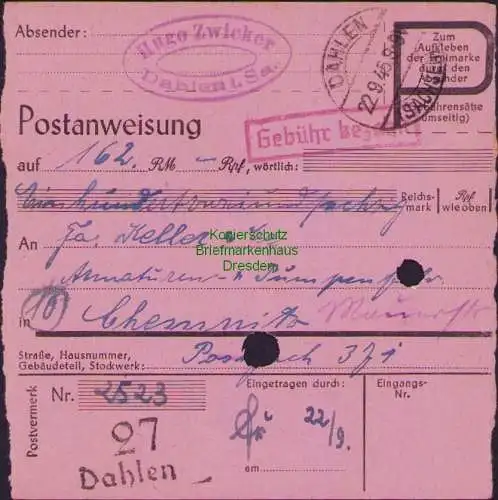 Absender:
Hugo Zwicker
Dahlen i. Sa.
DAHLEN
22.9.45
(SACHSEN)
Zum
Aufkleben
der Freimarke
durch den
Absender
Gebührensätze
umseitig)
Postanweisung
Gebühr bezahlt
auf 162. RM – Rpf, wörtlich:
Einhundertzweiundsechzig Reichs- Rpf
mark wie oben
An Fa. Keller & Co
Kopierschutz
Briefmarkenhaus
Dresden
Armaturen- u Pumpenfabr
(10)
in Chemnitz
Straße, Hausnummer, Postfach 371
Gebäudeteil, Stockwerk:
Postvermerk
Nr. 2523
27
Dahlen
Eingetragen durch:
22/9.
am
Eingangs-
Nr.